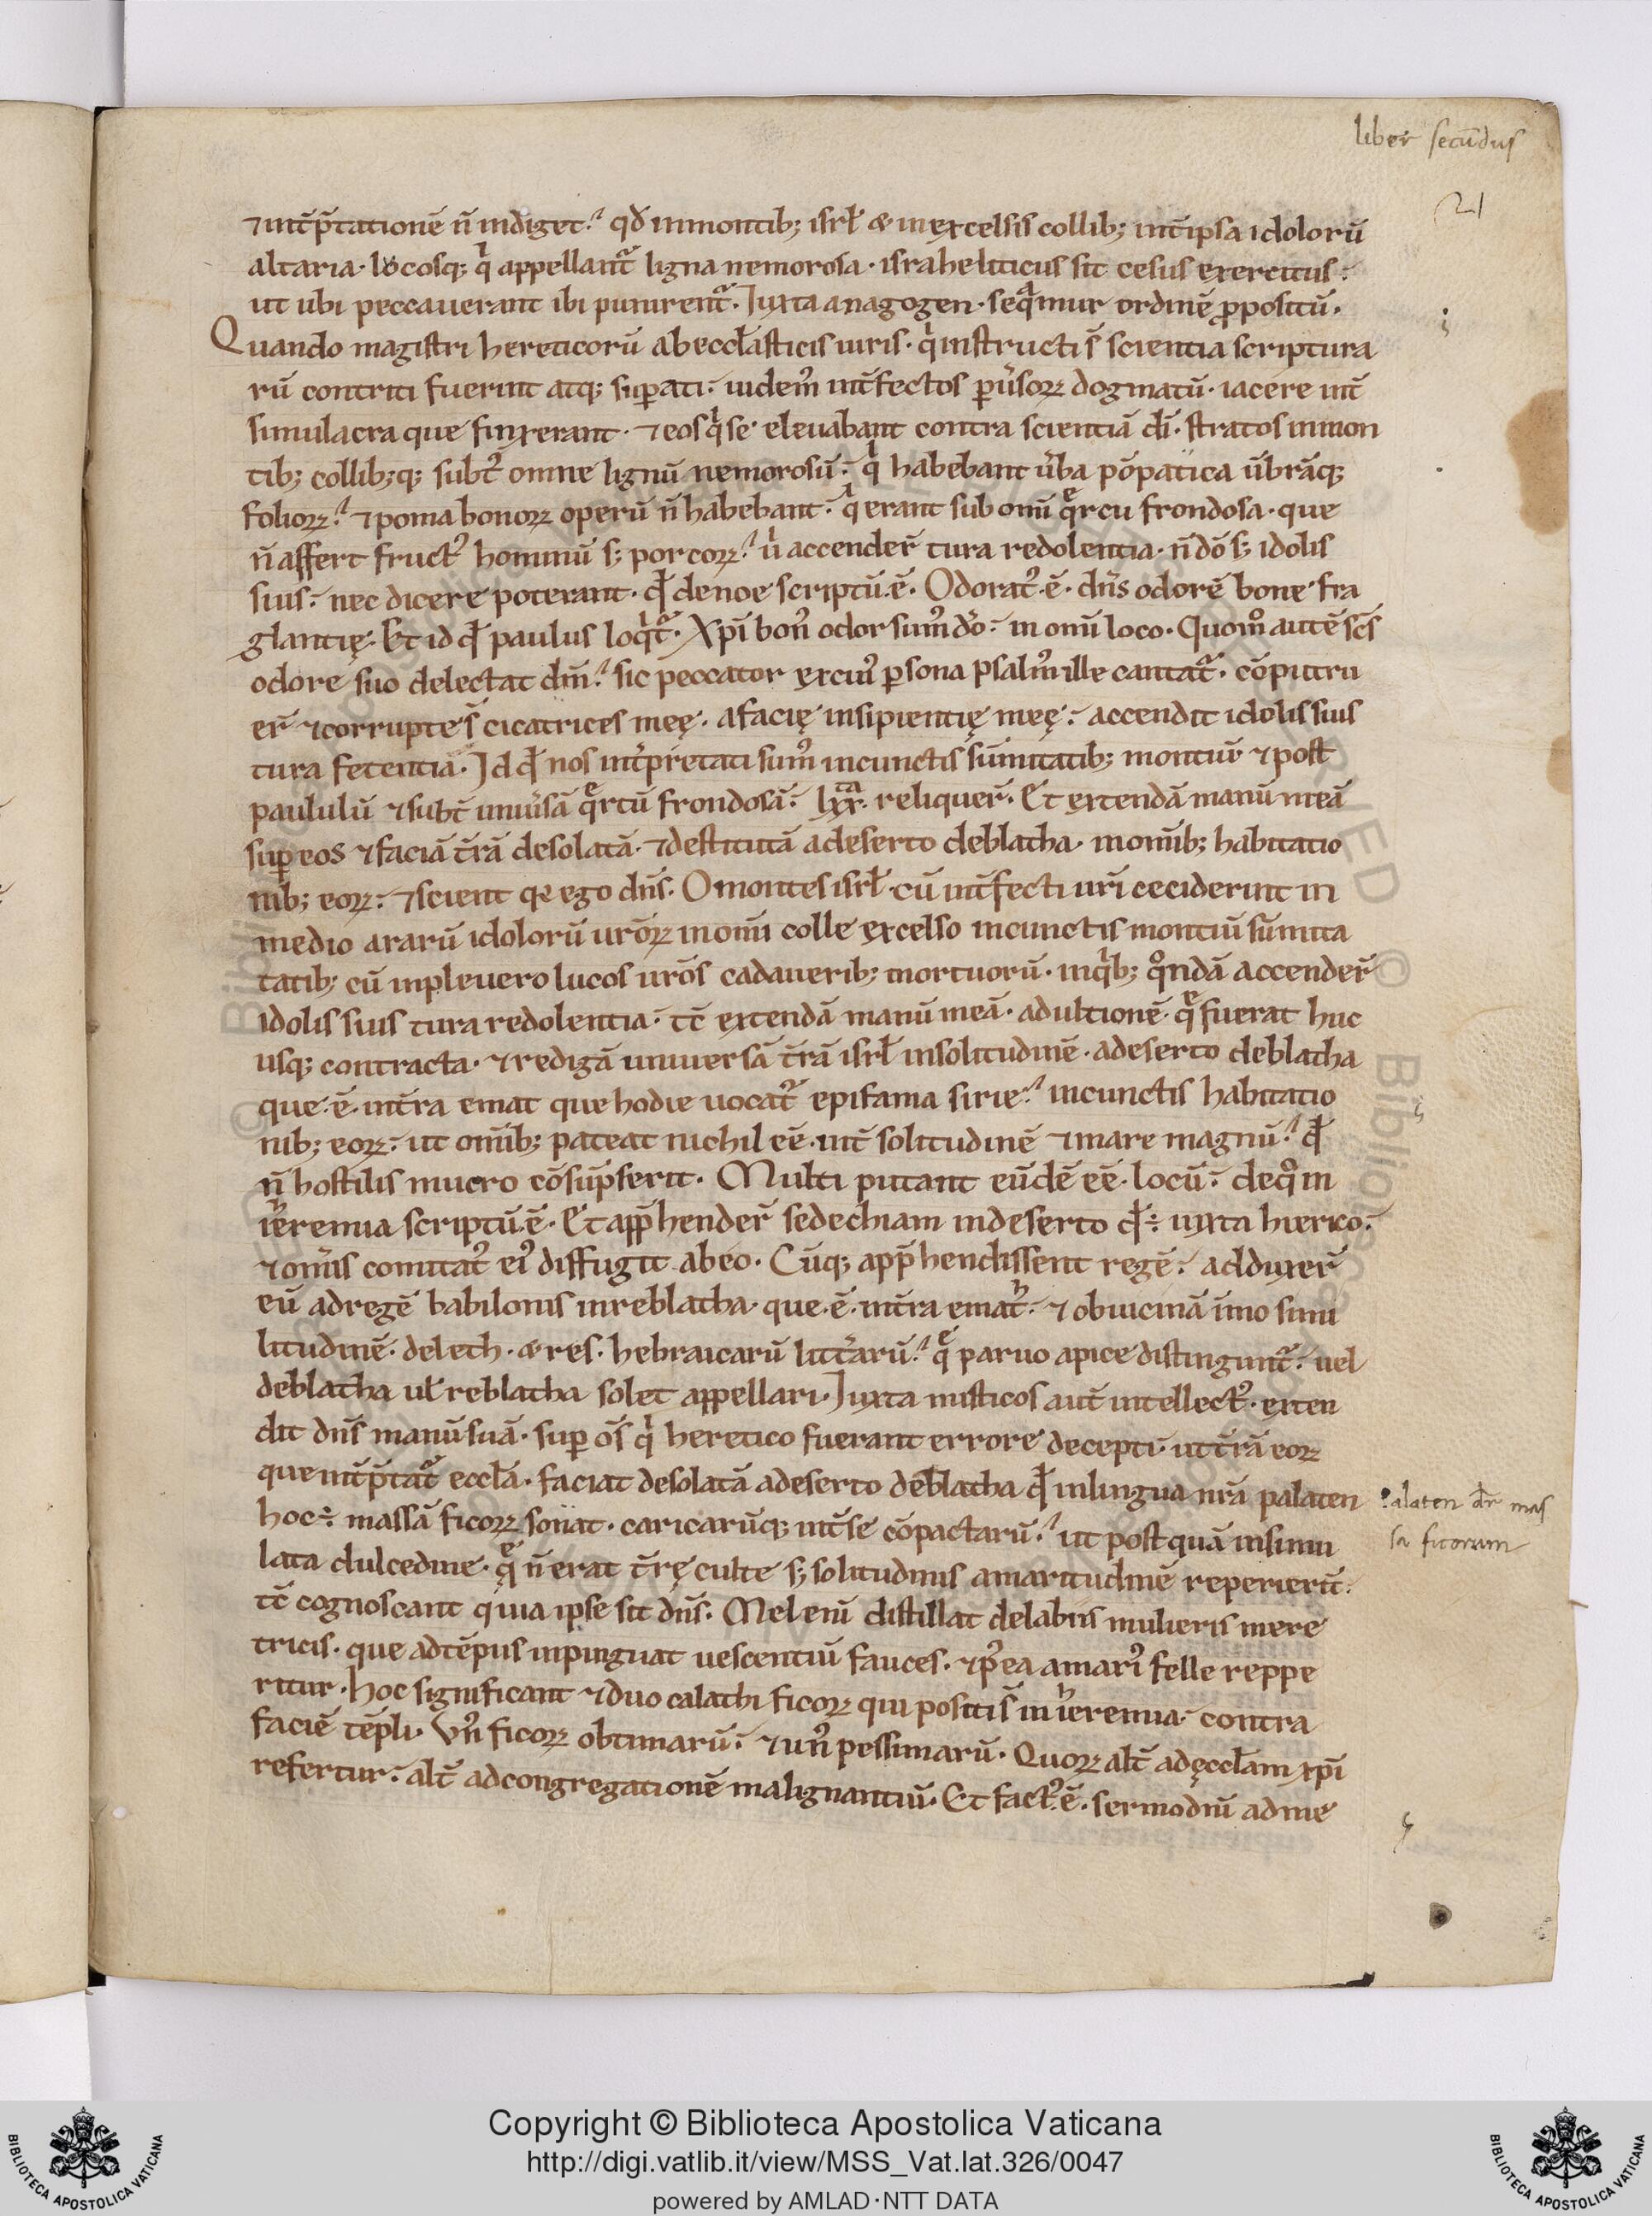 liber secūdus
21
⁊ int̄p̄tationē n̄ indiget. qd̄ inmontib; isrl̄ & inexcelsis collib; int̄ipsa idolorū
altaria. locosq; qͥ appellant᷑ ligna nemorosa. israheliticus sit cesus exercitus.
ut ubi peccauerant ibi punirent᷑. Iuxta anagogen. seqᷓmur ordinē p̱positū.
Quando magistri hereticorū abeccl̄asticis uiris. qͥ instructi s̄ scientia scriptura
rū contriti fuerint atq; sup̱ati. uidem᷒ int̄fectos p̱uͥsoꝝ dogmatū. iacere int̄
simulacra que finxerant. ⁊ eos qͥ se eleuabant contra scientiā dī. stratos inmon
tib; collib;q; subt᷒ omne lignū nemorosū. qͥ habebant ūba pōpatica ūbrāq;
folioꝝ. ⁊ poma bonoꝝ operū n̄ habebant. qͥ erant sub omī qͤrcu frondosa. que
n̄ affert fruct᷒ hominū s; porcoꝝ. uͥ accender̄ tura redolentia. n̄ dō s; idolis
suis. nec dicere poterant. qđ denoe scriptū.ē. Odorat᷒.ē. dn̄s odorē bone fra
glantię. Et id qđ paulus loqͥt᷑. Xpī bon᷒ odor sum᷒ dō. in omī loco. Quom̊ autē sc̄s
odore suo delectat dm̄. sic peccator excui᷒ p̱sona psalm᷒ ille cantat᷑. cōputru
er̄ ⁊ corrupte s̄ cicatrices meę. afacię insipientię meę. accendit idolis suis
tura fetentia. Id qđ nos int̄pretati sum᷒ incunctis sūmitatib; montiū ⁊ post
paululū ⁊ subt̄ uniūsā qͤrcū frondosā. lxx. reliquer̄. Et extendā manū meā
sup̱ eos ⁊ faciā t̄rā desolatā. ⁊ destitutā adeserto deblatha. inomīb; habitatio
nib; eoꝝ. ⁊ scient qꝛ ego dn̄s. O montes isrl̄. cū int̄fecti urī ceciderint in
medio ararū idolorū urōꝝ inomī colle excelso incunctis montiū sūmita
tatib; cū inpleuero lucos urōs cadauerib; mortuorū. inqͥb; qͦndā accender̄
idolis suis tura redolentia. tc̄ extendā manū meā. adultionē. qͤ fuerat huc
usq; contracta. ⁊ redigā uniuersā t̄rā isrl̄ insolitudinē. adeserto deblatha
que.ē. int̄ra emat que hodie uocat᷑ epifania sirie. incunctis habitatio
nib; eoꝝ. ut omīb; pateat nichil eē. int̄ solitudinē ⁊ mare magnū. qđ
n̄ hostilis mucro cōsūpserit. Multi putant eūdē eē. locū. deqͦ in
ieremia scriptū.ē. Et app̄hender̄ sedechiam indeserto qđ ÷ iuxta hierico.
⁊ om̄is comitat᷒ ei᷒ diffugit abeo. Cūq; app̄hendissent regē. adduxer̄
eū adregē babilonis inreblatha. que.ē. int̄ra emat. ⁊ obuicinā īmo simi
litudinē. deleth. & res. hebraicarū litt̄arū. qͤ paruo apice distingunt᷑. uel
deblatha ul̄ reblatha solet appellari. Iuxta misticos aut̄ intellect᷒. exten
dit dn̄s manū suā. sup̱ ōs qͥ heretico fuerant errore decepti. ut t̄rā eoꝝ
que int̄p̄tat᷑ eccl̄a. faciat desolatā adeserto deblatha qđ inlingua nr̄a palaten
hoc ÷ massā ficoꝝ sonat. caricarūq; int̄ se cōpactarū. ut postquā insimu
lata dulcedine. qͤ n̄ erat t̄rę culte s; solitudinis amaritudinē reperierīt.
tc̄ cognoscant quia ipse sit dn̄s. Mel enī distillat delabiis mulieris mere
tricis. que adtēpus inpinguat uescentiū fauces. ⁊ p᷒ea amari᷒ felle reppe
ritur. hoc significant ⁊ duo calathi ficoꝝ qui positi s̄ in ieremia. contra
faciē tēpli. Vn᷒ ficoꝝ obtimarū. ⁊ un᷒ pessimarū. Quoꝝ alt̄ adęccl̄am xpī
refertur. alt̄ adcongregationē malignantiū. Et fact᷒.ē. sermo dnī adme
palaten dr̄ mas
sa ficorum
Copyright © Biblioteca Apostolica Vaticana
http://digi.vatlib.it/view/MSS_Vat.lat.326/0047
powered by AMLAD·NTT DATA
BIBLIOTECA APOSTOLICA VATICANA
BIBLIOTECA APOSTOLICA VATICANA